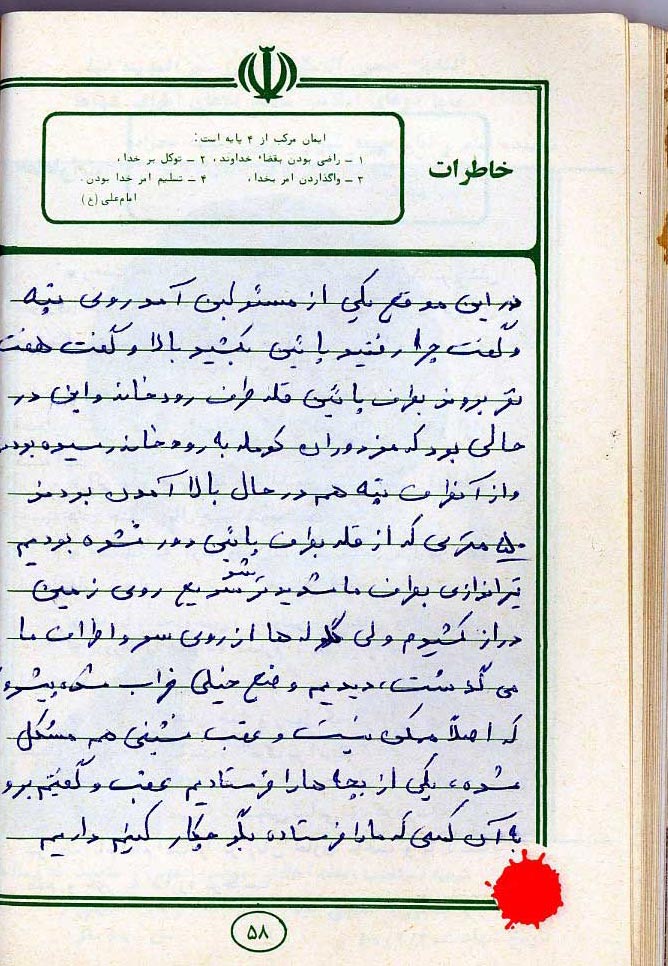 خاطرات
ایمان مرکب از ۴ پایه است:
۱ – راضی بودن بقضاء خداوند، ۲ – توکل بر خدا،
۳ – واگذاردن امر بخدا، ۴ – تسلیم امر خدا بودن.
امام علی (ع)
در این موقع یکی از مسئولین آمد روی تپه
و گفت چرا رفتید پائین بکشید بالا و گفت هفت
نفر بروند بطرف پائین قله طرف رودخانه و این در
حالی بود که مزدوران کومله به رودخانه رسیده بودند
و از آنطرف تپه هم در حال بالا آمدن بودند
۵۰ متری که از قله بطرف پائین دور نشده بودیم
تیراندازی بطرف ما شدیدتر شد سریع روی زمین
دراز کشیدم ولی گلوله ها از روی سر و اطراف ما
می گذشت، دیدیم وضع خیلی خراب شده، پیشروی
که اصلاً ممکن نیست و عقب نشینی هم مشکل
شده، یکی از بچه ها را فرستادیم عقب و گفتیم برو
به آن کسی که ما را فرستاده بگو چکار کنیم داریم
۵۸